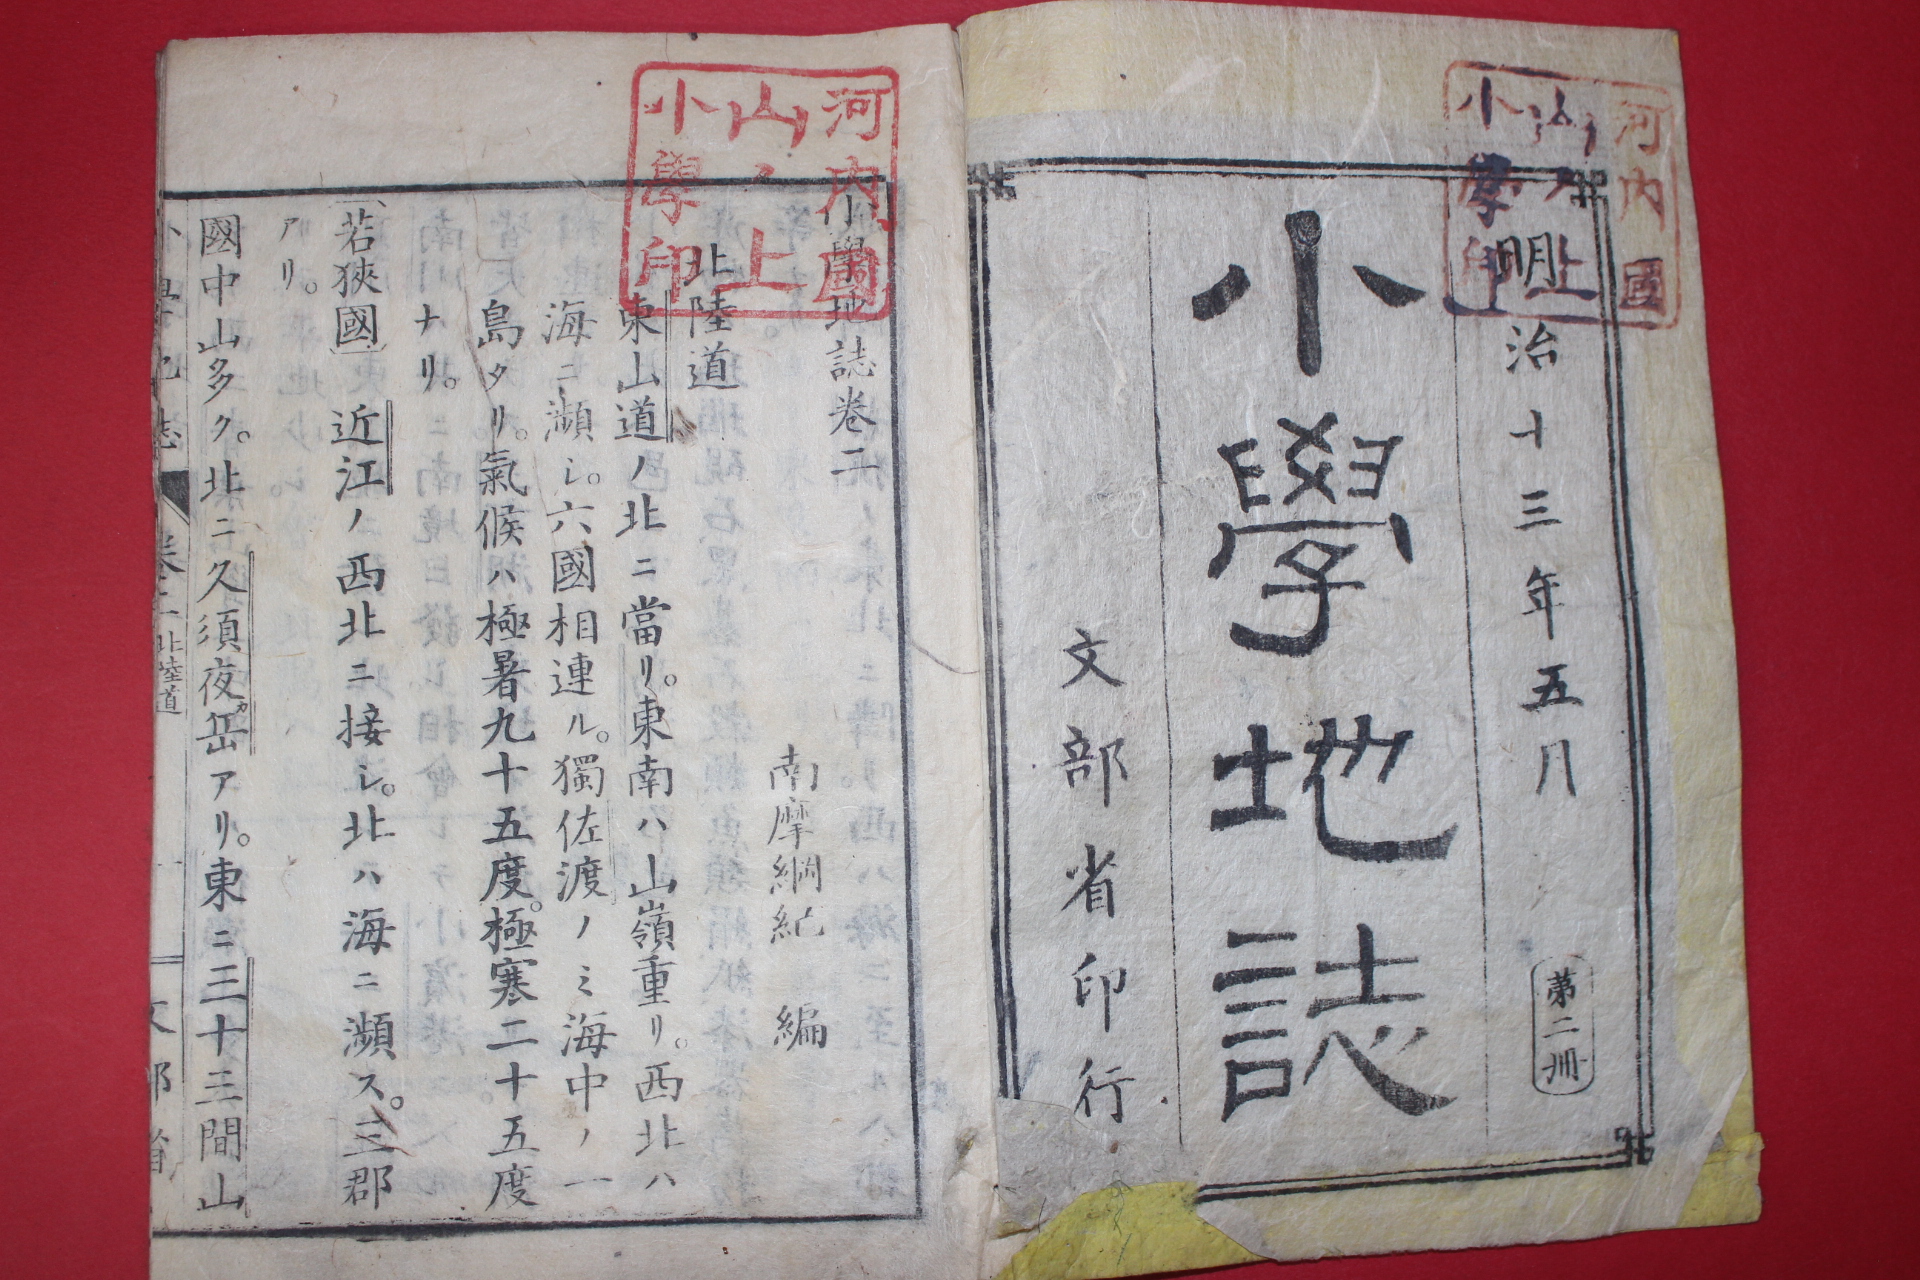 河內國
山ノ上
小學印
明治十三年五月
第二冊
小學地誌
文部省印行
河內國
山ノ上
小學印
小學地誌卷二
南摩綱紀 編
北陸道
東山道ノ北ニ當リ。東南ハ山嶺重リ。西北ハ
海ニ瀕シ。六國相連ル。獨佐渡ノミ海中ノ一
島タリ。氣候ハ極暑九十五度。極寒二十五度
ナリ。
若狹國 近江ノ西北ニ接シ。北ハ海ニ瀕ス。三郡
アリ。
國中山多ク。北ニ久須夜ガ岳アリ。東ニ三十三間山
卷二 北陸道